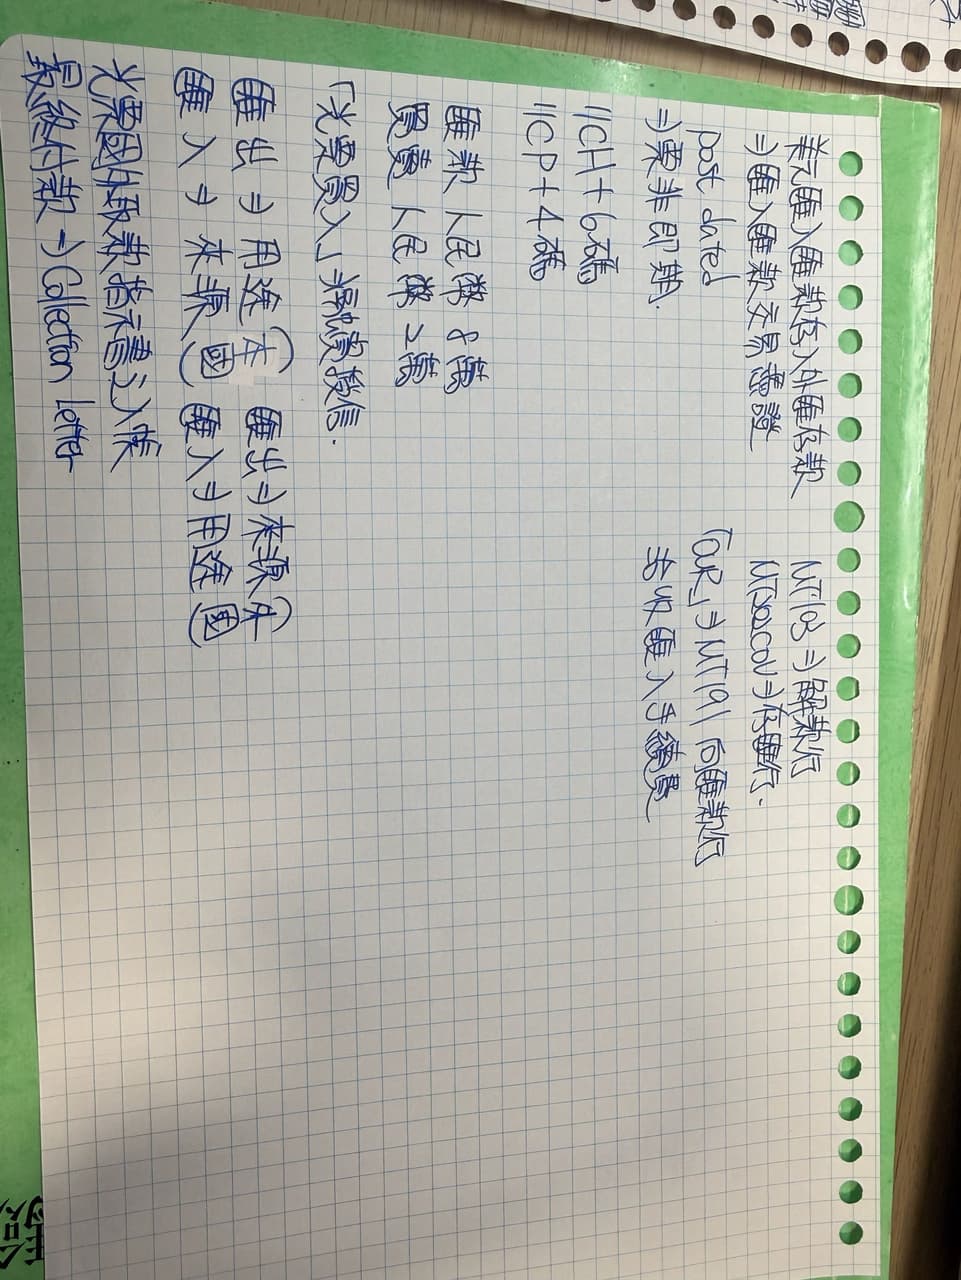 美元匯入匯款存入外匯存款
⇒匯入匯款交易憑證
post dated
⇒票非即期
//CH+6碼
//CP+4碼
匯款 人民幣8萬
買賣 人民幣2萬
「光票買入」授信.
匯出⇒用途(本
匯入⇒來源(國
匯出⇒來源(本
匯入⇒用途(國
光票國外取款指示書入帳
最終付款→Collection letter
MT103⇒解款行
MT202COV⇒存匯行.
「OUR」⇒MT191 向匯款行
去收匯入手續費